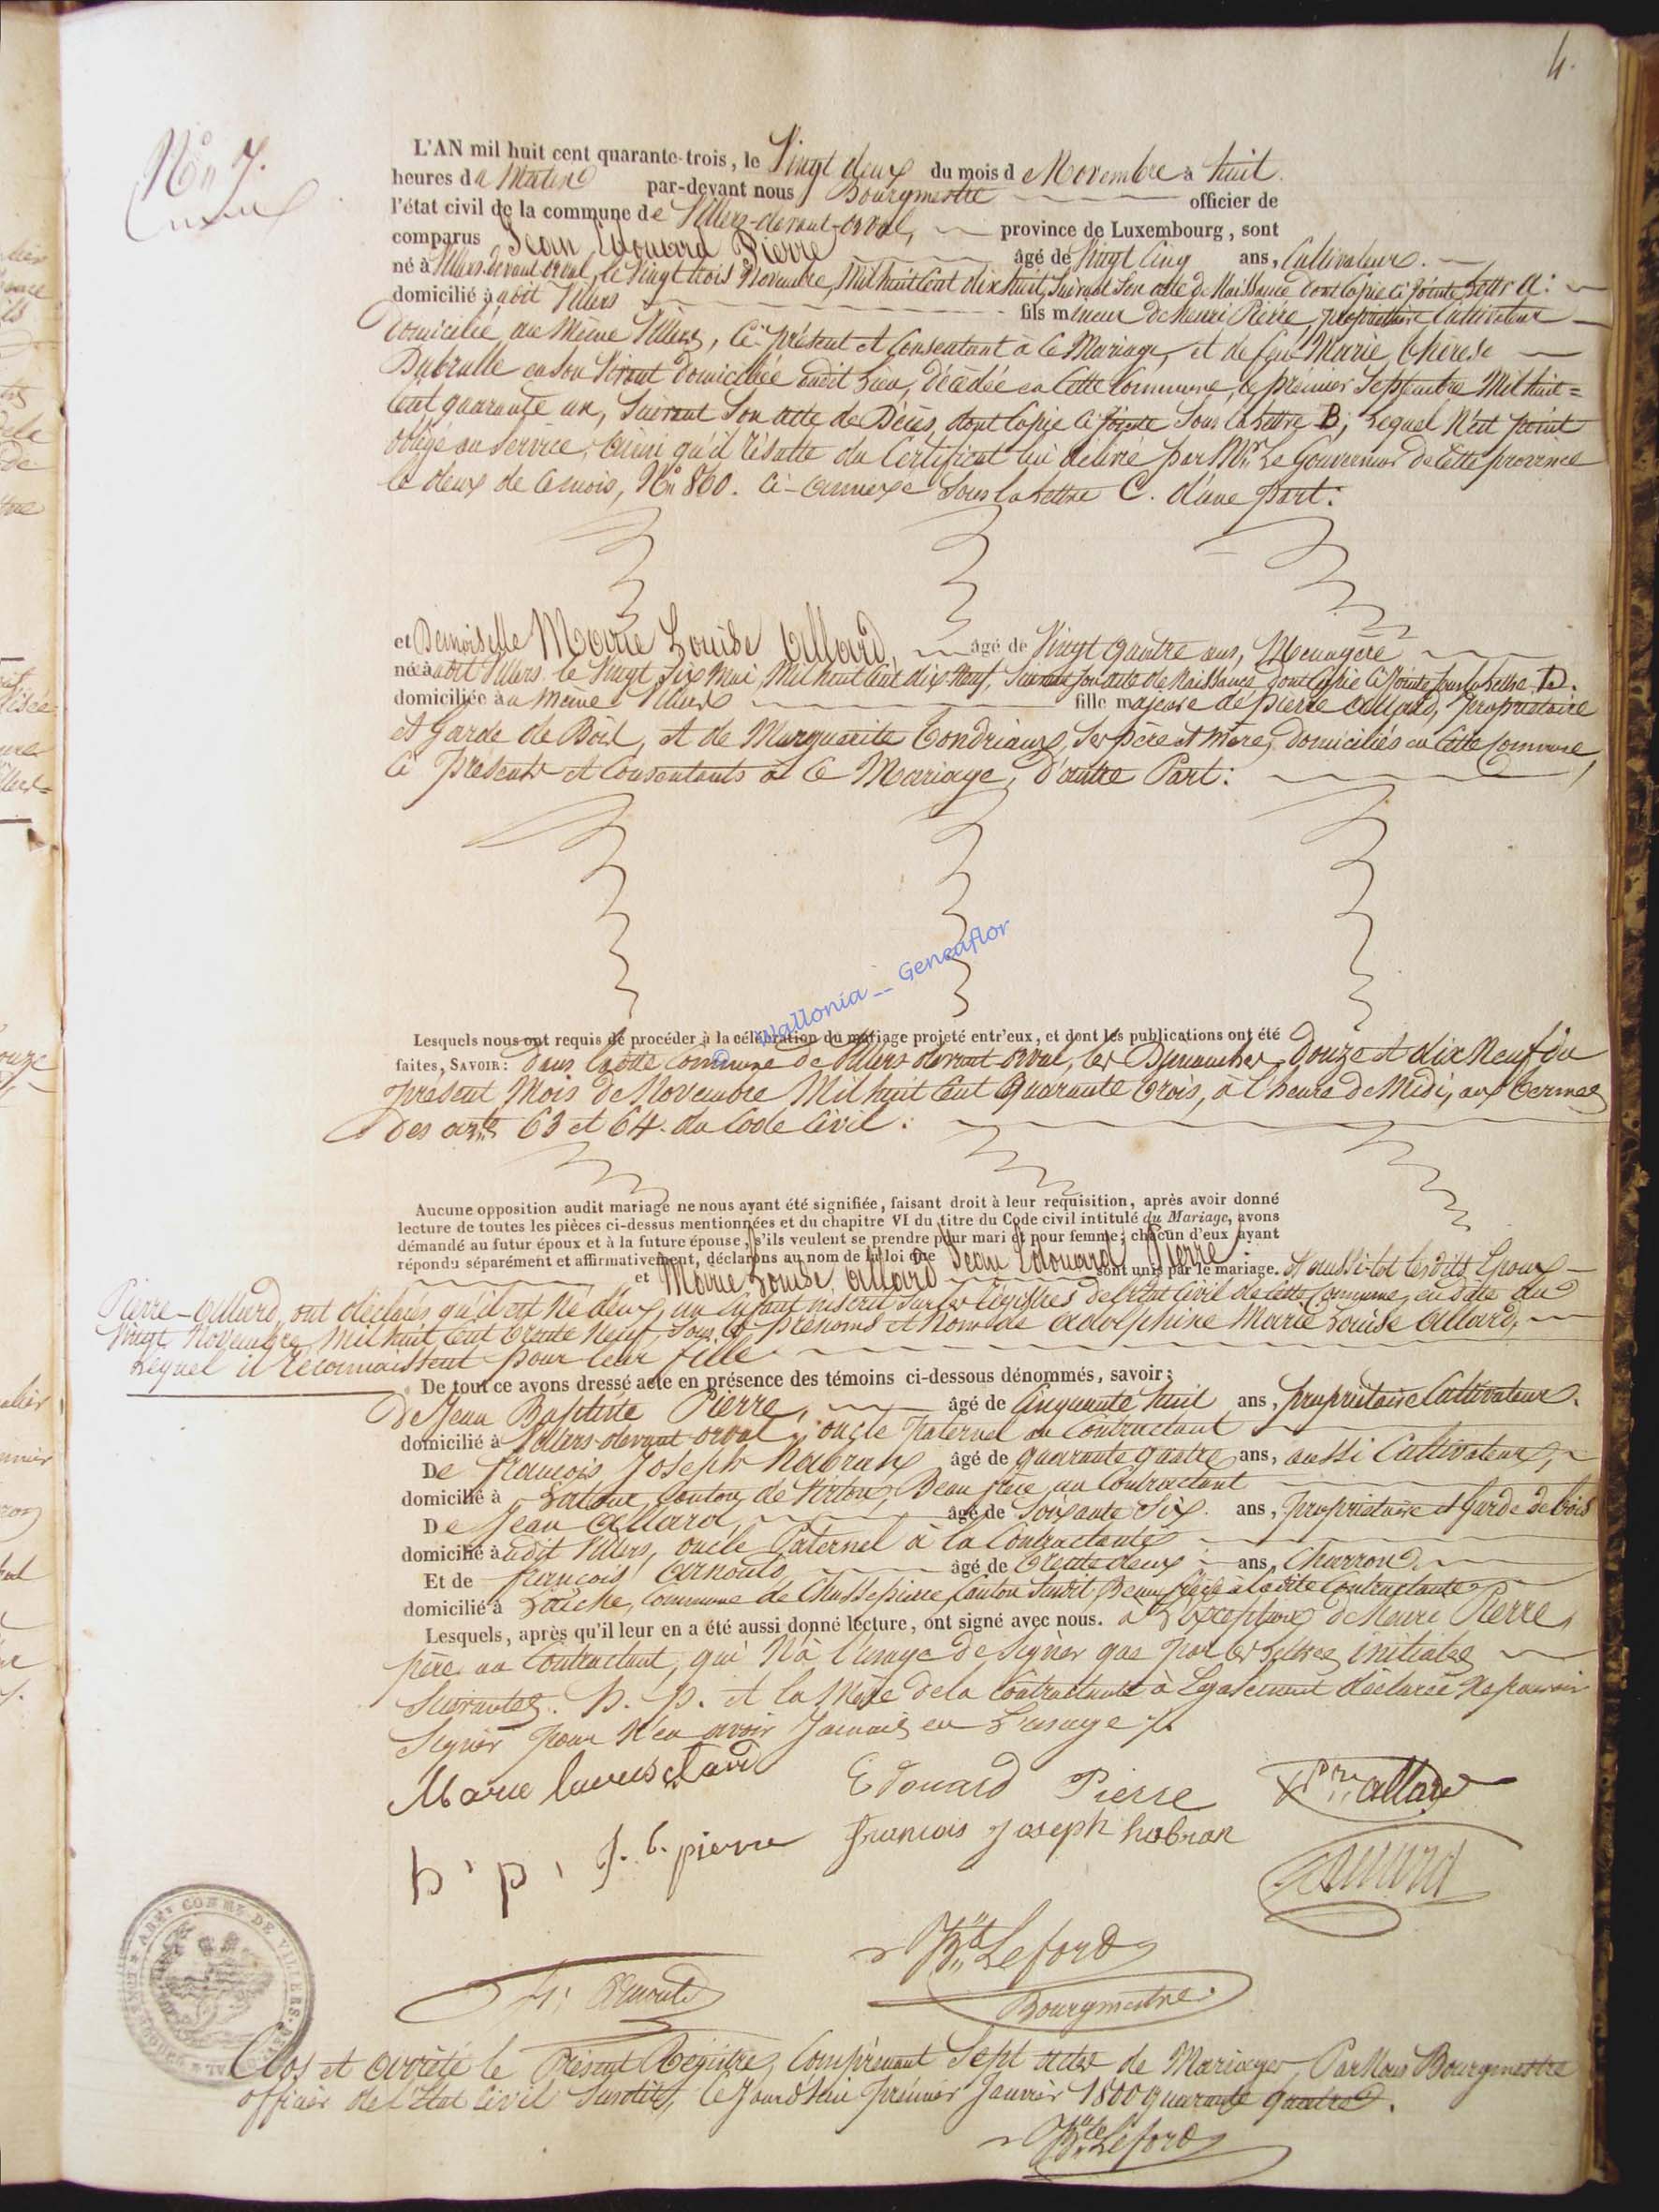 4.
N° 7.
L'AN mil huit cent quarante-trois, le Vingt deux du mois d e Novembre à huit
heures d u Matin par-devant nous Bourgmestre officier de
l'état civil de la commune de Villers-devant-orval, province de Luxembourg, sont
comparus Jean Edouard Pierre âgé de Vingt Cinq ans, Cultivateur.
né à Villers devant orval, le Vingt trois Novembre, Mil huit Cent dix huit, Suivant Son acte de Naissance dont Copie Ci jointe Lettre A:
domicilié à udit Villers fils mineur de Henri Pierre, propriétaire Cultivateur
Domicilié au Même Villers, Ci présent et Consentant à Ce Mariage, et de feue Marie Thérese
Dubrulle en Son Vivant Domiciliée audit Lieu, Décédée en Cette Commune, le premier Septembre Mil huit=
Cent quarante un, Suivant Son acte de Décès, dont Copie Ci Jointe Sous la Lettre B; Lequel N'est point
obligé au Service, ainsi qu'il résulte du Certificat lui délivré par Mr. Le Gouverneur de Cette province
le deux de Ce mois, N° 860. Ci-annexé Sous la Lettre C. d'une part:
et Demoiselle Marie Louise Allard, âgé de Vingt quatre ans, Menagère
né à udit Villers le Vingt Six Mai Mil huit Cent dix Neuf, Suivant Son acte de Naissance dont Copie Ci Jointe Sous la Lettre D.
domiciliée au même Villers fille majeure de pierre Allard, propriétaire
et Garde de Bois, et de Marguerite Tondriaux, Ses père et mère, Domiciliés en Cette Commune,
Ci Présents et Consentants à Ce Mariage, D'autre Part:
© Wallonia __ Geneaflor
Lesquels nous ont requis de procéder à la célébration du mariage projeté entr'eux, et dont les publications ont été
faites, SAVOIR: Dans Cette Commune de Villers devant orval, les Dimanches Douze et dix Neuf du
présent Mois de Novembre Mil huit Cent Quarante Trois, à l'heure de Midi, aux Termes
Des arts 63 et 64 du Code Civil:
Aucune opposition audit mariage ne nous ayant été signifiée, faisant droit à leur requisition, après avoir donné
lecture de toutes les pièces ci-dessus mentionnées et du chapitre VI du titre du Code civil intitulé du Mariage, avons
démandé au futur époux et à la future épouse, s'ils veulent se prendre pour mari et pour femme; chacun d'eux ayant
répondu séparément et affirmativement, déclarons au nom de la loi que Jean Edouard Pierre
et Marie Louise Allard sont unis par le mariage. Et aussi-tot lesdits Epoux
Pierre-Allard, ont déclarés qu'il est Né d'eux, un Enfant inscrit Sur les Régistres de l'Etat Civil de Cette Commune, en date du
Vingt Novembre Mil huit Cent Trente Neuf, Sous les prénoms et Nom de Adolphine Marie Louise Allard,
Lequel il réconnaissent pour leur fille.
De tout ce avons dressé acte en présence des témoins ci-dessous dénommés, savoir:
De Jean Baptiste Pierre, âgé de Cinquante huit ans, propriétaire Cultivateur.
domicilié à Villers-devant-orval, oncle Paternel au Contractant
De François Joseph Habran âgé de quarante quatre ans, aussi Cultivateur,
domicilié à Latour, Canton de Virton, Beau frère au Contractant
De Jean Allard, âgé de Soixante Six ans, propriétaire et Garde de bois
domicilié audit Villers, oncle Paternel à la Contractante
Et de François Arnould, âgé de Trente deux ans, Charron,
domicilié à Laîche, Commune de Chassepierre Canton Susdit Beau frère à ladite Contractante
Lesquels, après qu'il leur en a été aussi donné lecture, ont signé avec nous. à L'Exception de Henri Pierre,
père au Contractant, qui N'à l'usage de Signer que par les Lettres initiales
Suivantes. h. p. et la Mère de la Contractante à Egalement déclarée Ne pouvoir
Signer pour N'en avoir Jamais eu L'usage ./.
Edouard Pierre
h. p. J. b. pierre François Joseph habran
Leford
Bourgmestre.
Clos et arrêté le Présent Régistre, Comprenant Sept actes de Mariages, Par Nous Bourgmestre
officier de l'Etat Civil Susdit, Ce Jourd'hui premier Janvier 1800 quarante quatre.
Leford